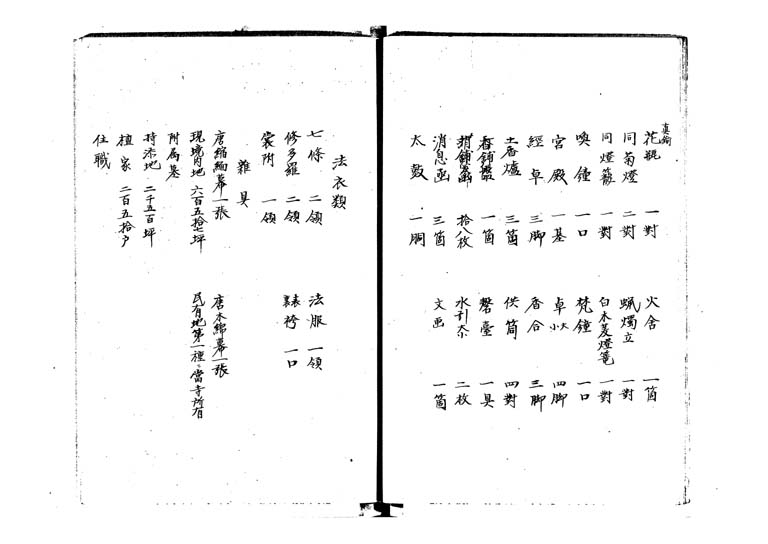 真鍮
花瓶 一對 火舎 一箇
同菊燈 二對 蝋燭立 一對
同燈籠 一對 白木菱燈篭 一對
喚鐘 一口 梵鐘 一口
宮殿 一基 卓 大小 四脚
經卓 三脚 香合 三脚
土香爐 三箇 供笥 四對
一箇 磬臺 一具
拾八枚 水引 二枚
消息函 三箇 文函 一箇
太鼓 一胴
法衣類
七條 二領 法服 一領
修多羅 二領 表袴 一口
裳附 一領
雜具
唐縮緬幕 一張 唐木綿幕 一張
現境内地 六百五拾七坪 民有地第一種ニ當寺所有
附属墓
持添地 二千五百坪
檀家 二百五拾戸
住職